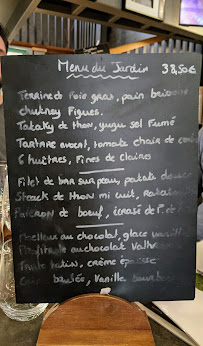 Menu du Jardin 38,50€
Terrine de Foie gras, pain brioché
chutney Figues.
Tataky de thon, yuzu sol Fumé
Tartare avocat, tomate chair de
6 huîtres, Fines de Claires
Filet de bar sur peau, patate douce
Steack de thon mi cuit,
de bœuf, écrasé de P. de
Moelleux au chocolat, glace vanille
Profiterole au chocolat
tatin, crème épaisse
Vanille bourbon